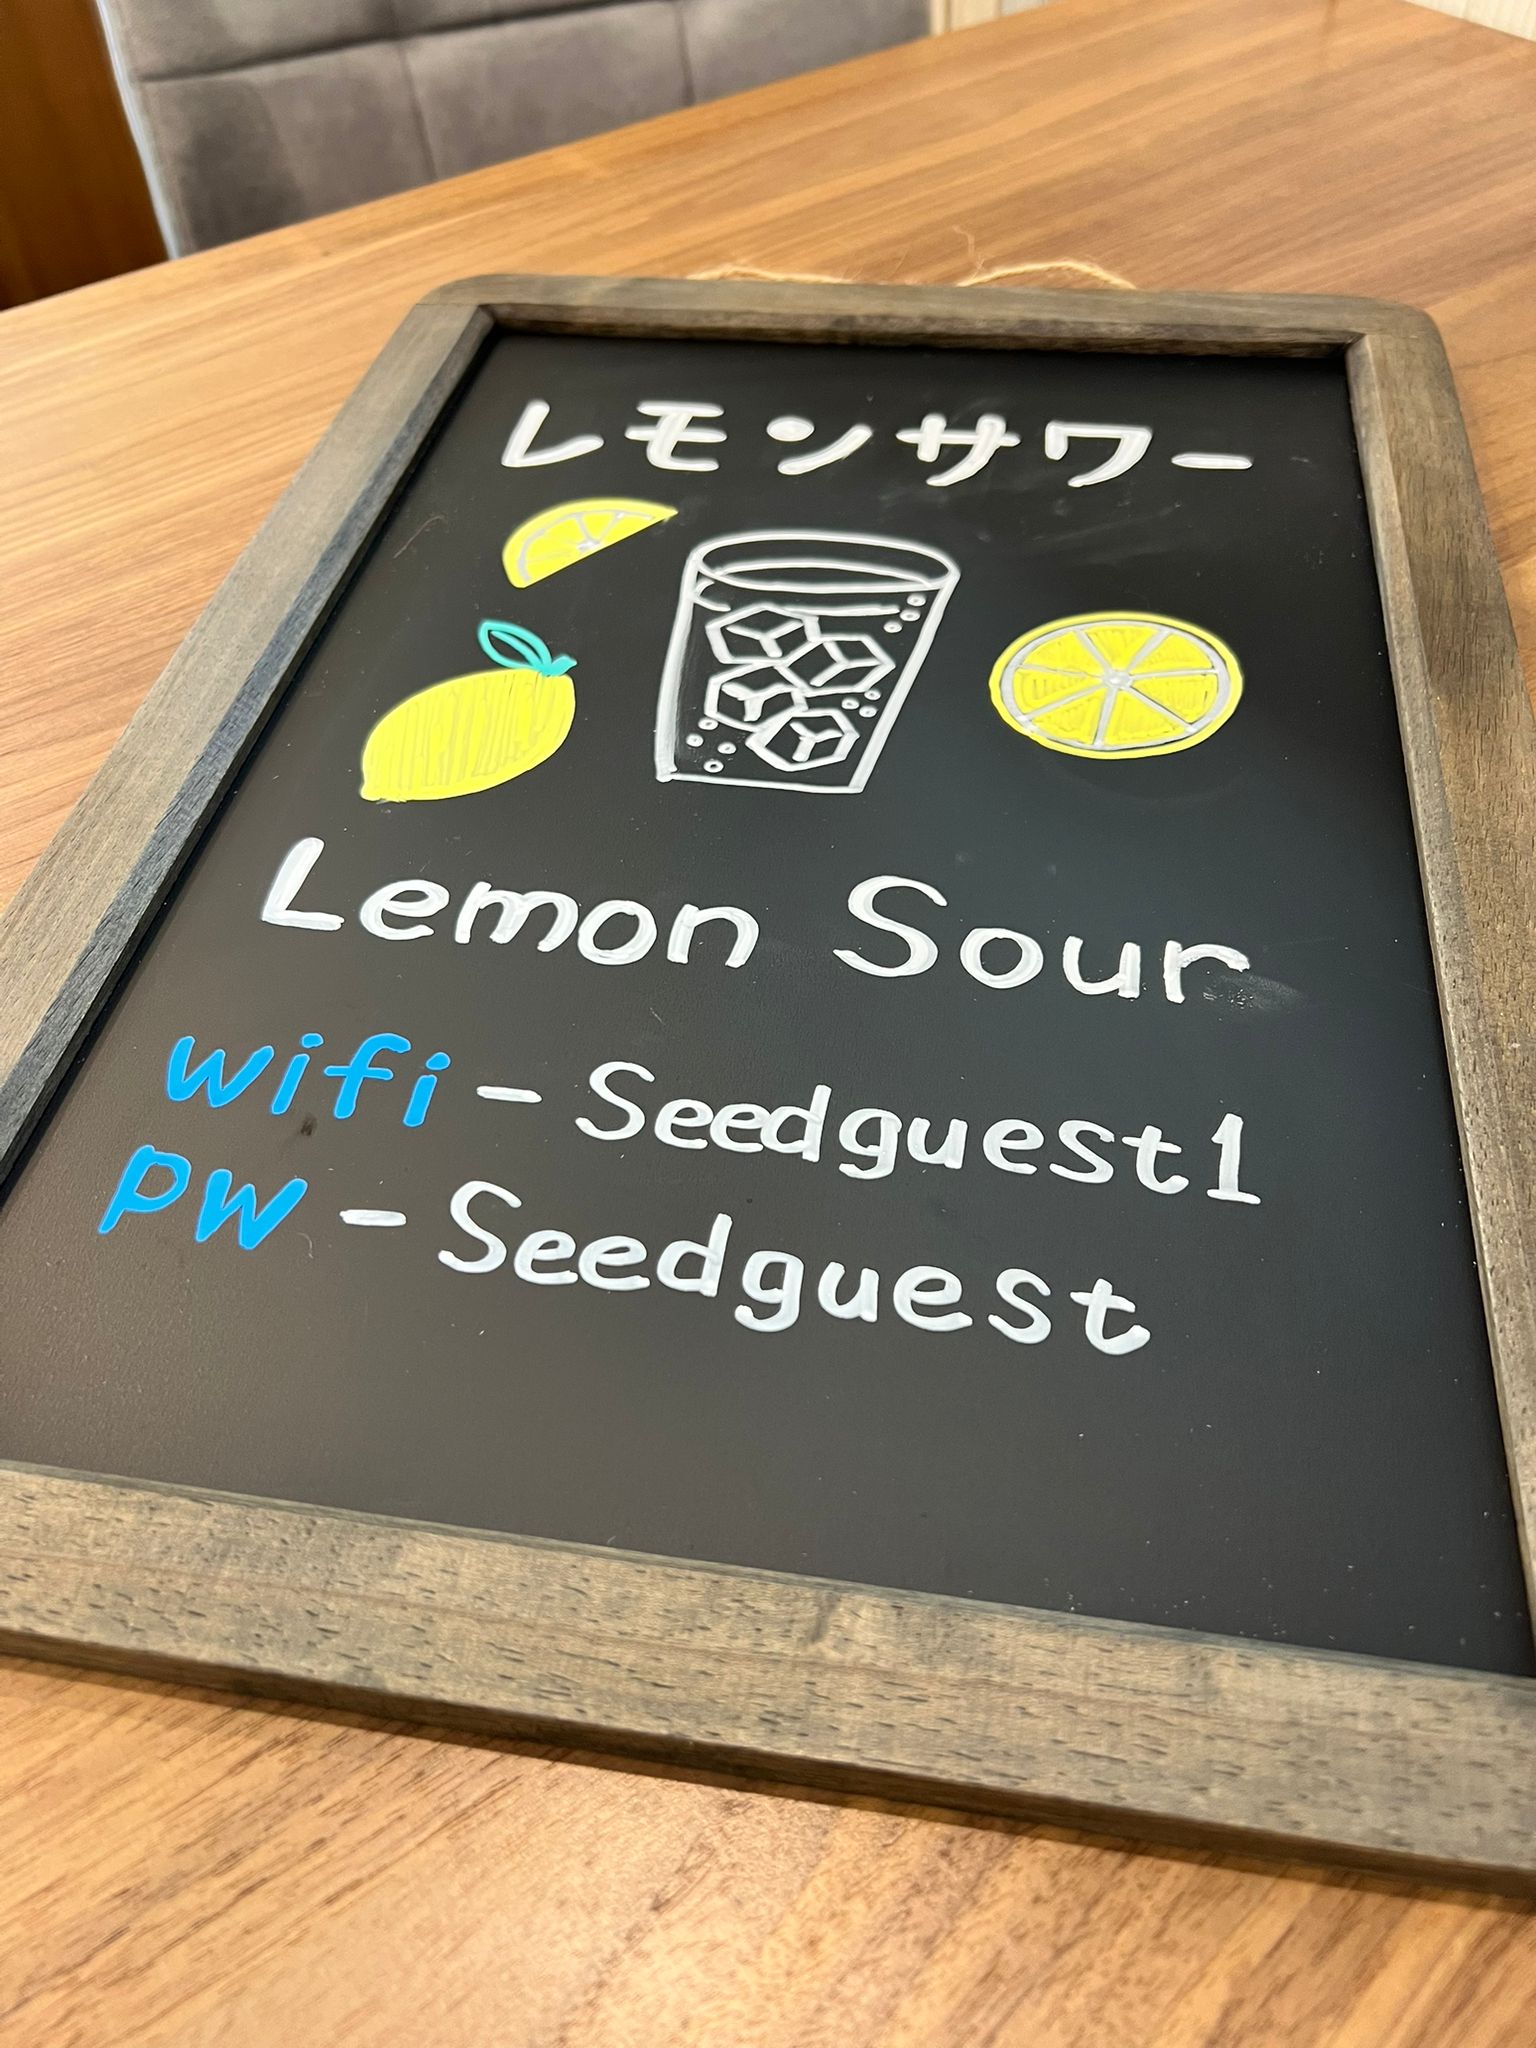 レモンサワー
Lemon Sour
wifi - Seedguest1
PW - Seedguest